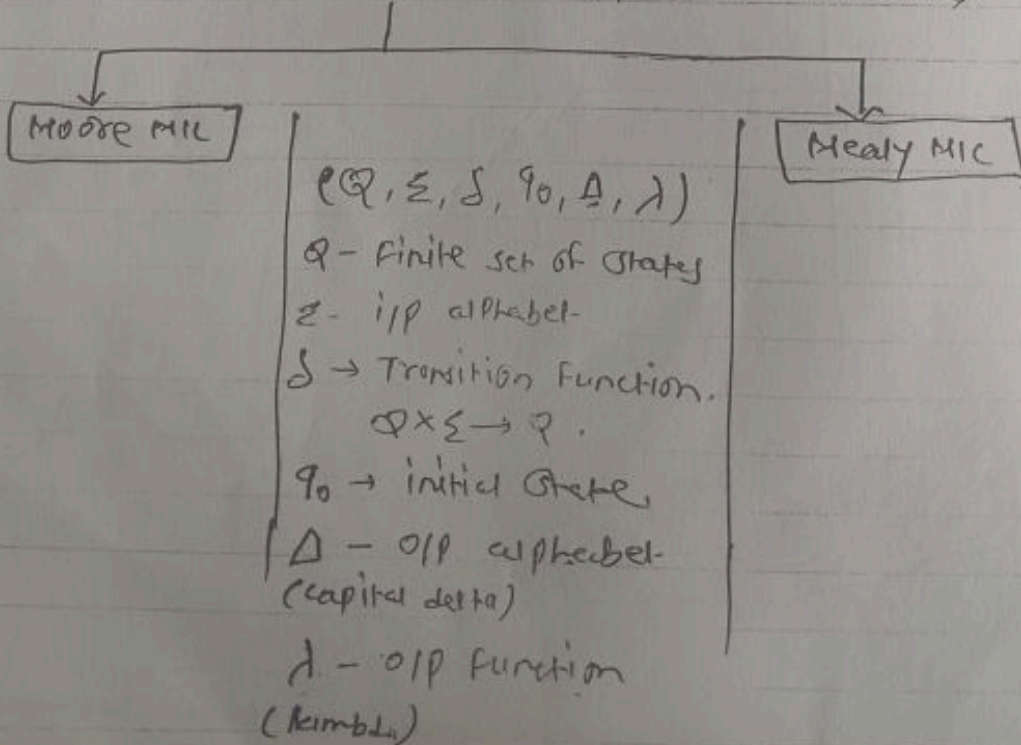 Moore M/C
Mealy M/C
(Q, Σ, δ, q0, Δ, λ)
Q - Finite set of States
Σ - i/p alphabet
δ → Transition Function.
Q×Σ → Q.
q0 → initial State
Δ - O/P alphabet
(capital delta)
λ - O/P Function